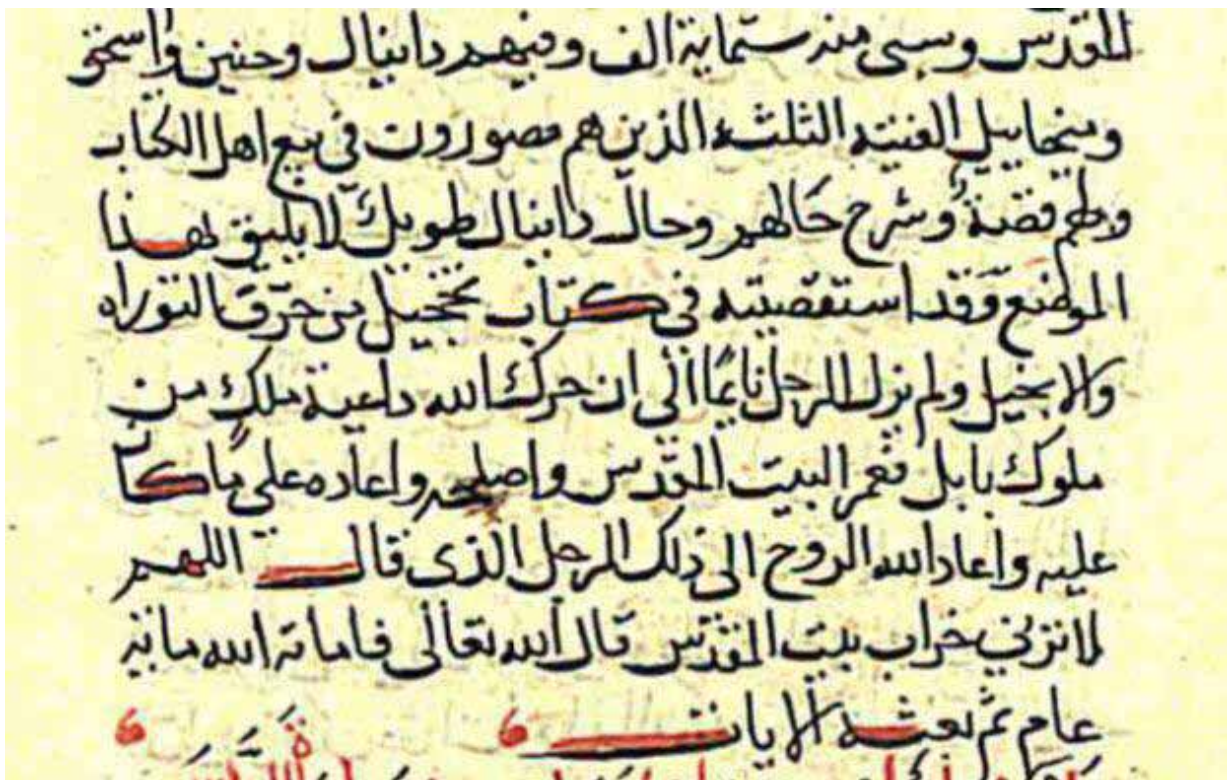 المقدس وسبى منه ستماية الف وفيهم دانيال وحنين واسحق
وميخاييل الفتيه الثلثه الذين هم مصورون في بيع اهل الكتاب
ولهم قصة وشرح حالهم وحال دانيال طويل لا يليق بهذا
الموضع وقد استقصيته في كتاب تخجيل من حرف التوراه
والانجيل ولم يزل الرجل نايمًا الى ان حرك الله داعية ملك من
ملوك بابل فعمر البيت المقدس واصلحه واعاده على ما كان
عليه واعاد الله الروح الى ذلك الرجل الذى قال اللهم
لا ترني خراب بيت المقدس قال الله تعالى فاماته الله ماية
عام ثم بعثه الايات